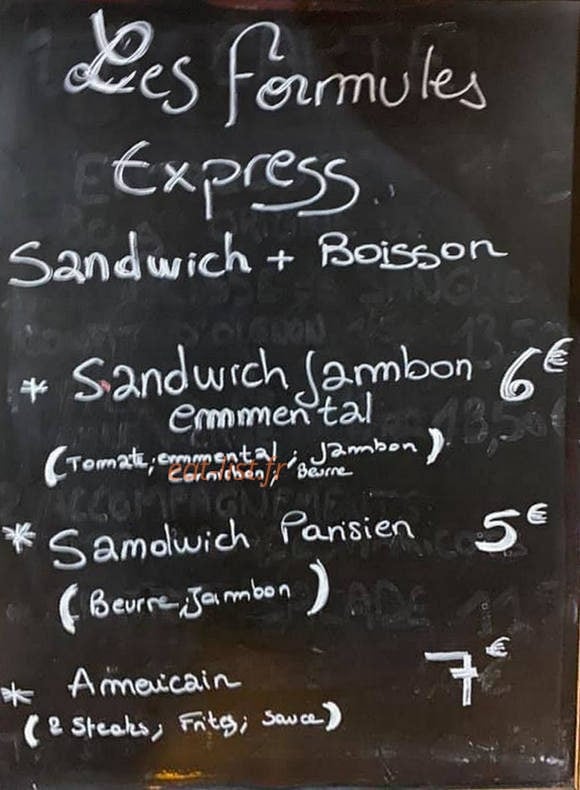 Les formules
Express
Sandwich + Boisson
* Sandwich Jambon 6€
emmental
(Tomate; emmental; Jambon)
Cornichon; Beurre
eat.list.fr
* Sandwich Parisien 5€
(Beurre; Jambon)
* Americain 7€
(2 Steaks; Frites; Sauce)